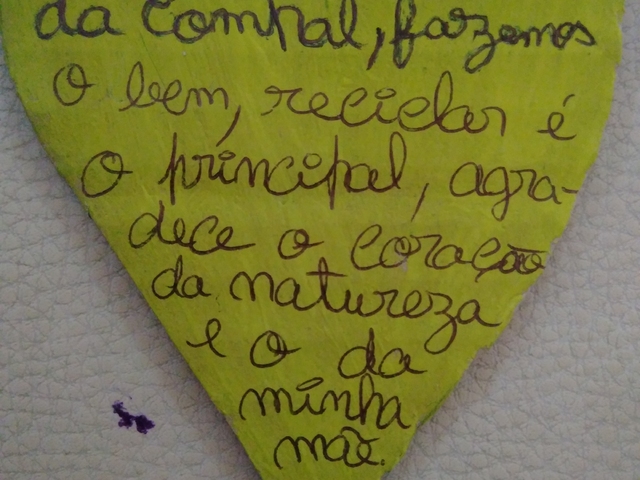 da Compal, fazemos
o bem, reciclar é
o principal, agra-
dece o coração
da natureza
e o da
minha
mãe.